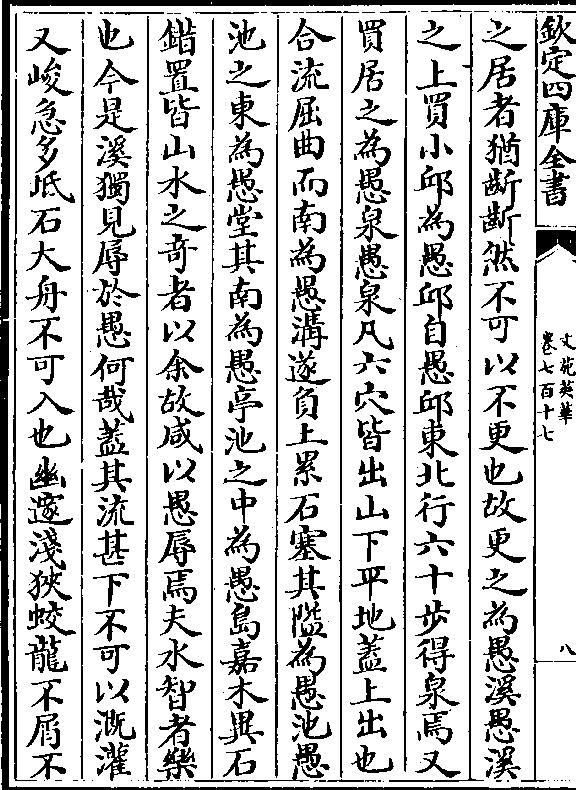 欽定四庫全書
文苑英華
卷七百十七
八
之居者猶齗齗然不可以不更也故更之為愚溪愚溪
之上買小邱為愚邱自愚邱東北行六十步得泉焉又
買居之為愚泉愚泉凡六穴皆出山下平地蓋上出也
合流屈曲而南為愚溝遂負上累石塞其隘為愚池愚
池之東為愚堂其南為愚亭池之中為愚島嘉木異石
錯置皆山水之奇者以余故咸以愚辱焉夫水智者樂
也今是溪獨見辱於愚何哉蓋其流甚下不可以溉灌
又峻急多坻石大舟不可入也幽邃淺狹蛟龍不屑不